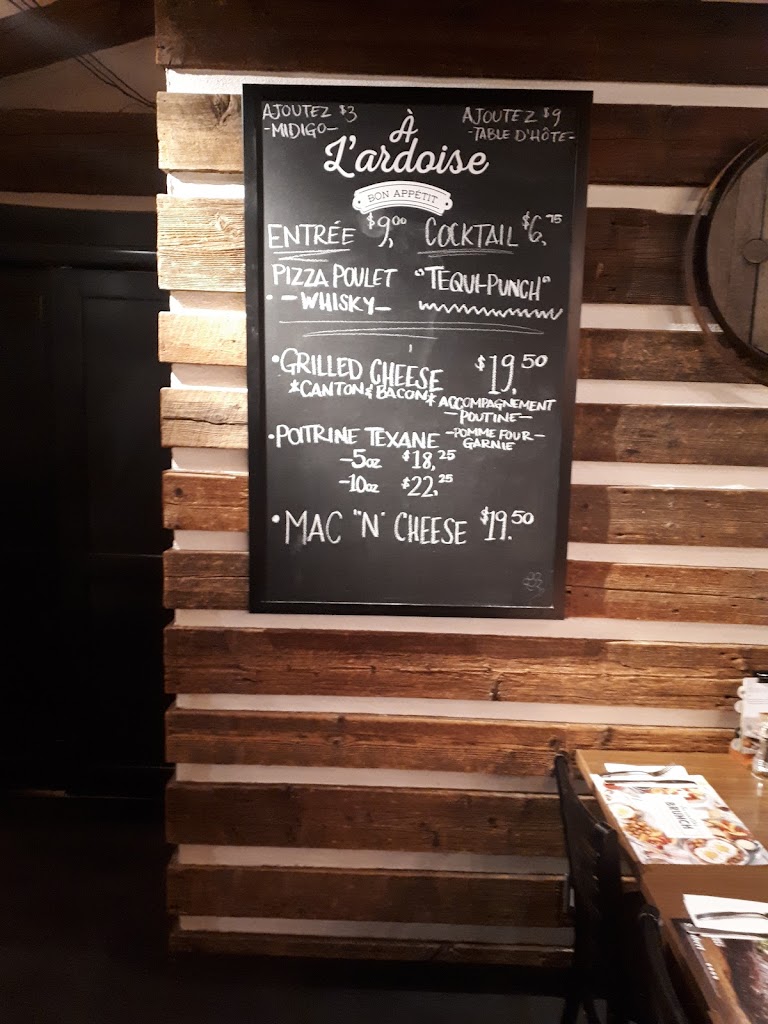 AJOUTEZ $3
-MIDIGO-
AJOUTEZ $9
-TABLE D'HÔTE-
À
L'ardoise
BON APPÉTIT
ENTRÉE $9,00
COCKTAIL $6,75
PIZZA POULET
-WHISKY-
"TEQUI-PUNCH"
•GRILLED CHEESE $19,50
*CANTON & BACON*
ACCOMPAGNEMENT
-POUTINE-
-POMME FOUR-
GARNIE
•POITRINE TEXANE
-5oz $18,25
-10oz $22,25
•MAC "N" CHEESE $19.50
BRUNCH